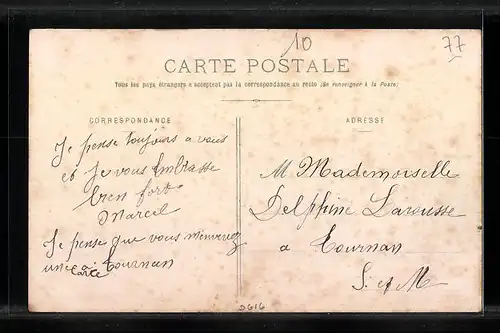 10
77
CARTE POSTALE
Tous les pays étrangers n'acceptent pas la correspondance au recto (Se renseigner à la Poste)
CORRESPONDANCE
Je pense toujours a vous
et Je vous Embrasse
bien fort
Marcel
Je pense que vous m'enverrez
une carte a Tournan
ADRESSE
M Mademoiselle
Delphine Larousse
a Tournan
S. et M
5616